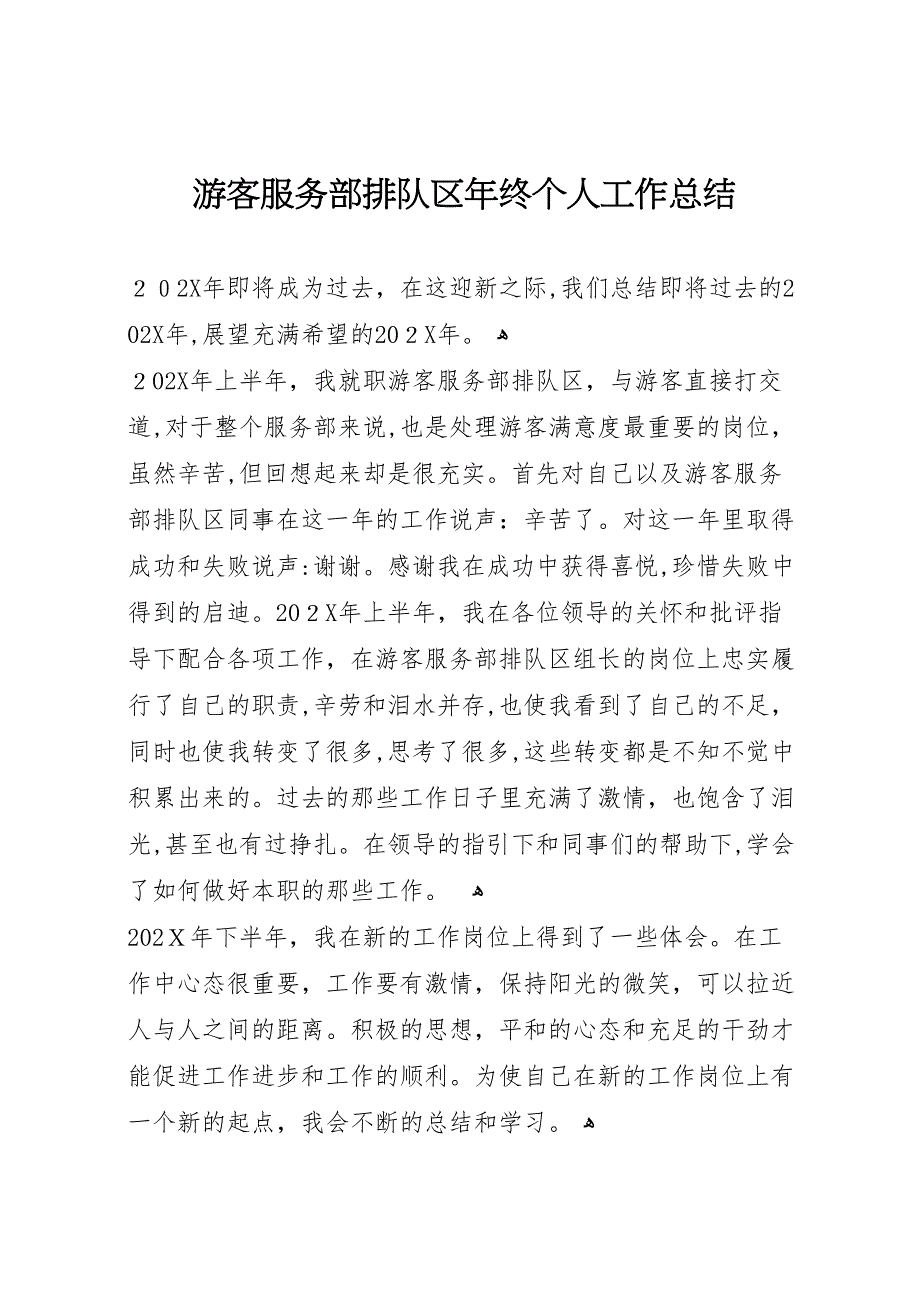 游客服务部排队区年终个人工作总结
２０2X年即将成为过去，在这迎新之际,我们总结即将过去的2
02X年,展望充满希望的20２X年。 ﻫ
２02X年上半年，我就职游客服务部排队区，与游客直接打交
道,对于整个服务部来说,也是处理游客满意度最重要的岗位，
虽然辛苦,但回想起来却是很充实。首先对自己以及游客服务
部排队区同事在这一年的工作说声：辛苦了。对这一年里取得
成功和失败说声:谢谢。感谢我在成功中获得喜悦,珍惜失败中
得到的启迪。20２X年上半年，我在各位领导的关怀和批评指
导下配合各项工作，在游客服务部排队区组长的岗位上忠实履
行了自己的职责,辛劳和泪水并存,也使我看到了自己的不足，
同时也使我转变了很多,思考了很多,这些转变都是不知不觉中
积累出来的。过去的那些工作日子里充满了激情，也饱含了泪
光,甚至也有过挣扎。在领导的指引下和同事们的帮助下,学会
了如何做好本职的那些工作。 ﻫ
202Ｘ年下半年，我在新的工作岗位上得到了一些体会。在工
作中心态很重要，工作要有激情，保持阳光的微笑，可以拉近
人与人之间的距离。积极的思想，平和的心态和充足的干劲才
能促进工作进步和工作的顺利。为使自己在新的工作岗位上有
一个新的起点，我会不断的总结和学习。 ﻫ